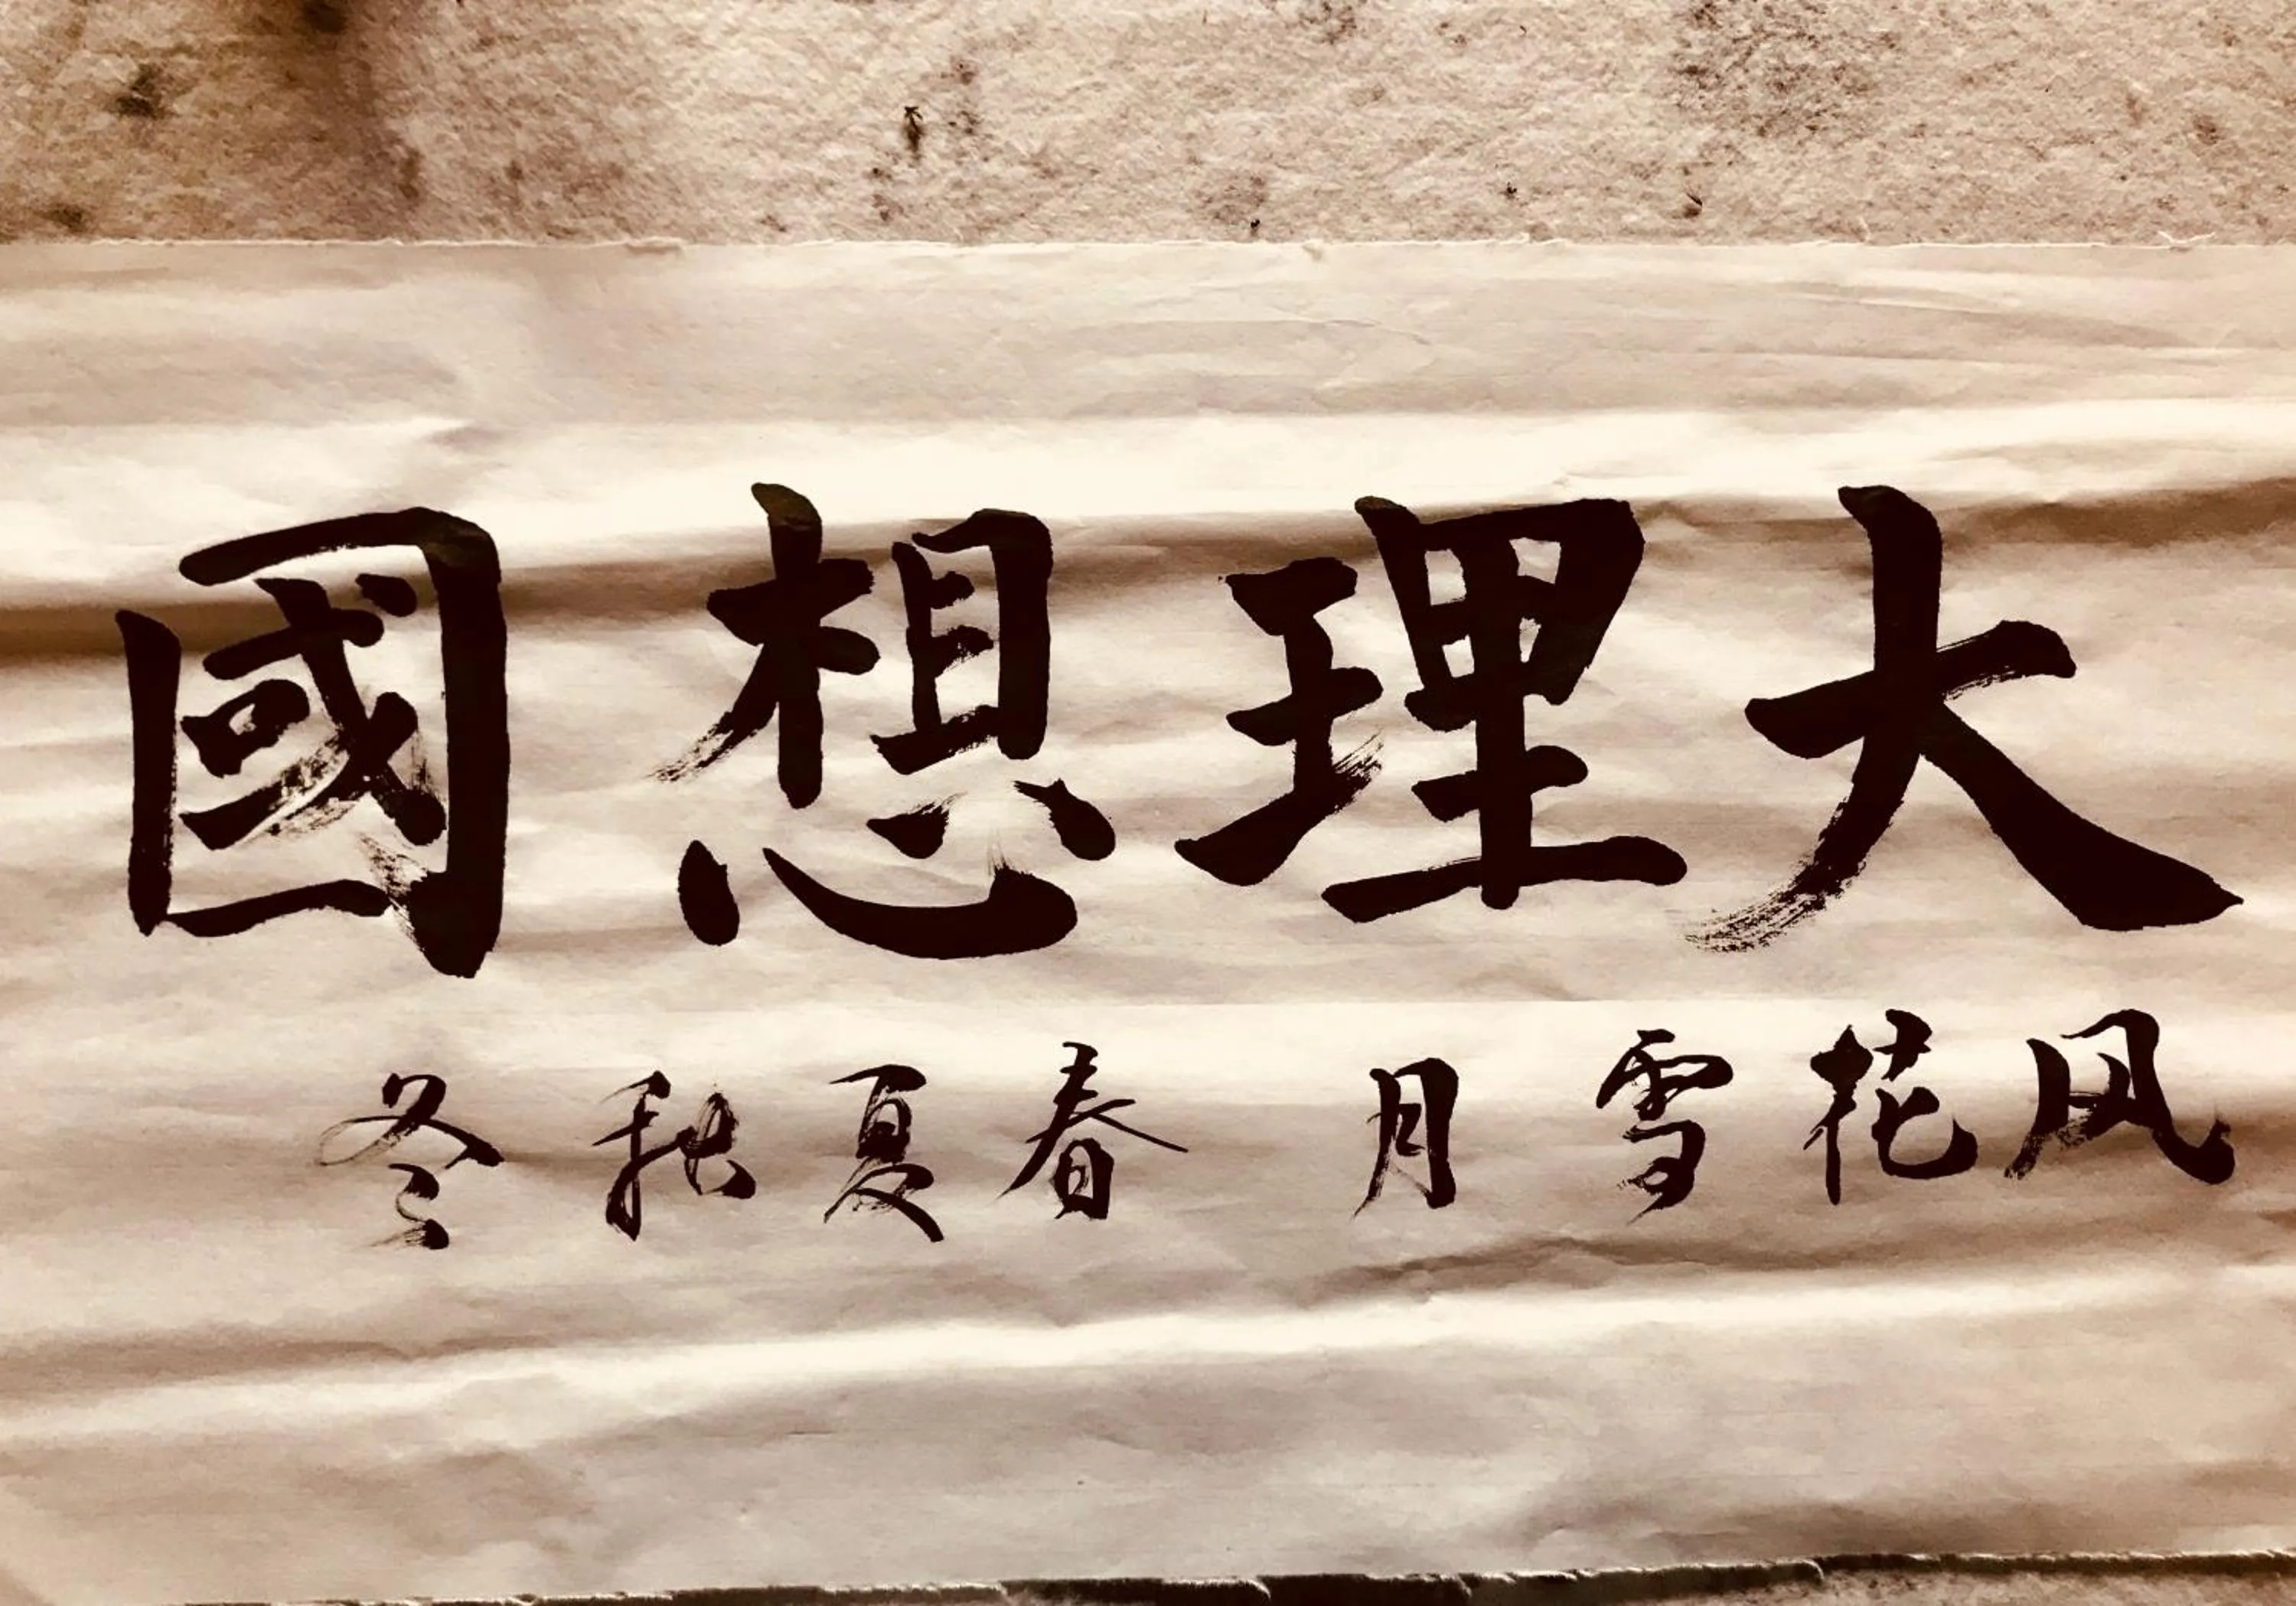 大理想國
风花雪月 春夏秋冬